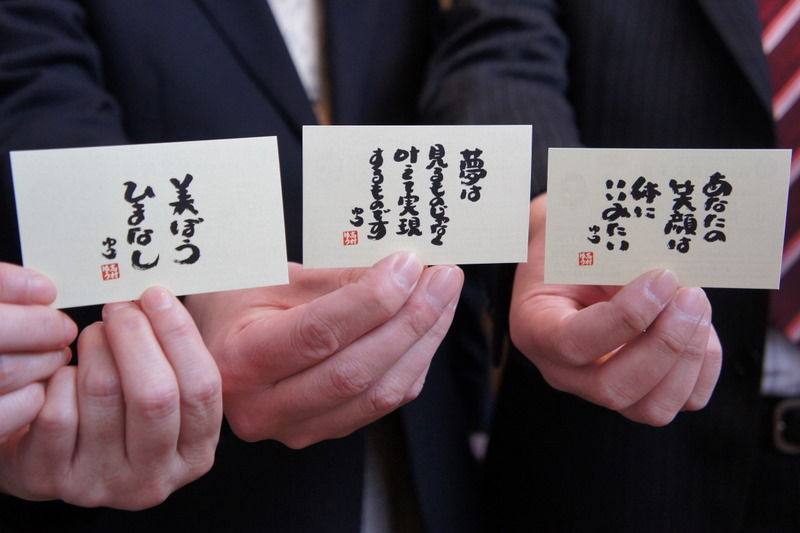 美ぼう
ひまなし
夢は
見るものじゃなく
叶えて実現
するものです
あなたの
笑顔は
体に
いいみたい